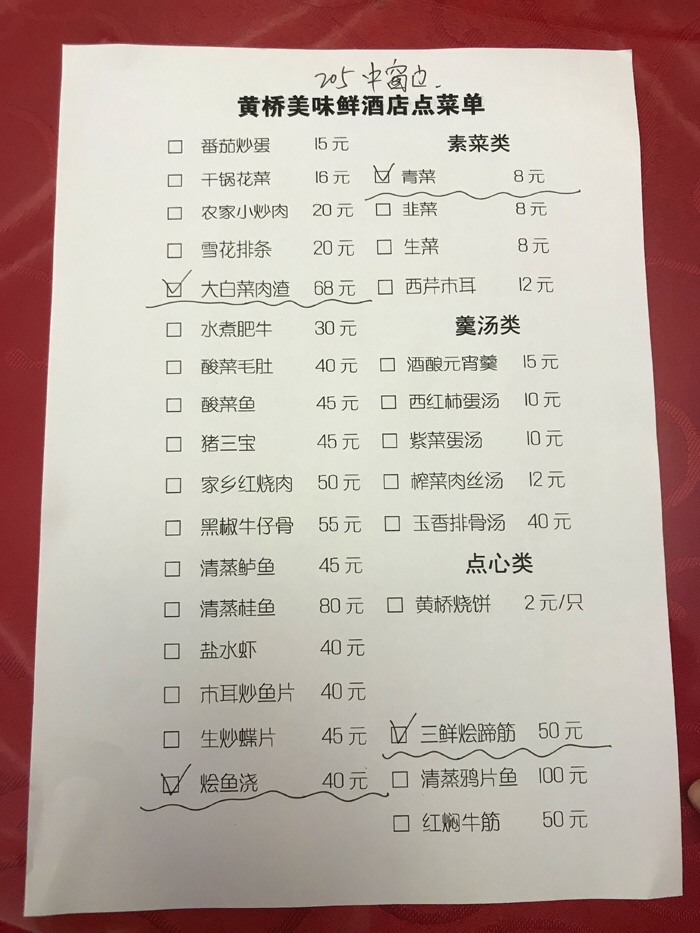 205 中窗边.
黄桥美味鲜酒店点菜单
□ 番茄炒蛋 15元
□ 干锅花菜 16元
□ 农家小炒肉 20元
□ 雪花排条 20元
☑ 大白菜肉渣 68元
□ 水煮肥牛 30元
□ 酸菜毛肚 40元
□ 酸菜鱼 45元
□ 猪三宝 45元
□ 家乡红烧肉 50元
□ 黑椒牛仔骨 55元
□ 清蒸鲈鱼 45元
□ 清蒸桂鱼 80元
□ 盐水虾 40元
□ 木耳炒鱼片 40元
□ 生炒蝶片 45元
☑ 烩鱼浇 40元
素菜类
☑ 青菜 8元
□ 韭菜 8元
□ 生菜 8元
□ 西芹木耳 12元
羹汤类
□ 酒酿元宵羹 15元
□ 西红柿蛋汤 10元
□ 紫菜蛋汤 10元
□ 榨菜肉丝汤 12元
□ 玉香排骨汤 40元
点心类
□ 黄桥烧饼 2元/只
☑ 三鲜烩蹄筋 50元
□ 清蒸鸦片鱼 100元
□ 红焖牛筋 50元